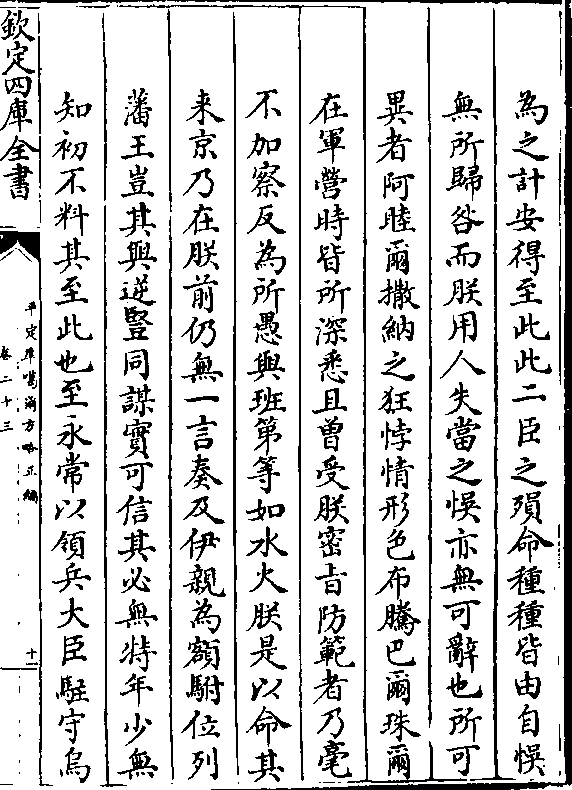 為之計安得至此此二臣之殞命種種皆由自悞
無所歸咎而朕用人失當之悞亦無可辭也所可
異者阿睦爾撒納之狂悖情形色布騰巴爾珠爾
在軍營時皆所深悉且曽受朕密㫖防範者乃毫
不加察反為所愚與班第等如水火朕是以命其
来京乃在朕前仍無一言奏及伊親為額駙位列
藩王豈其與逆豎同謀實可信其必無特年少無
知初不料其至此也至永常以領兵大臣駐守烏
欽定四庫全書
平定準噶爾方略正編
卷二十三
十一